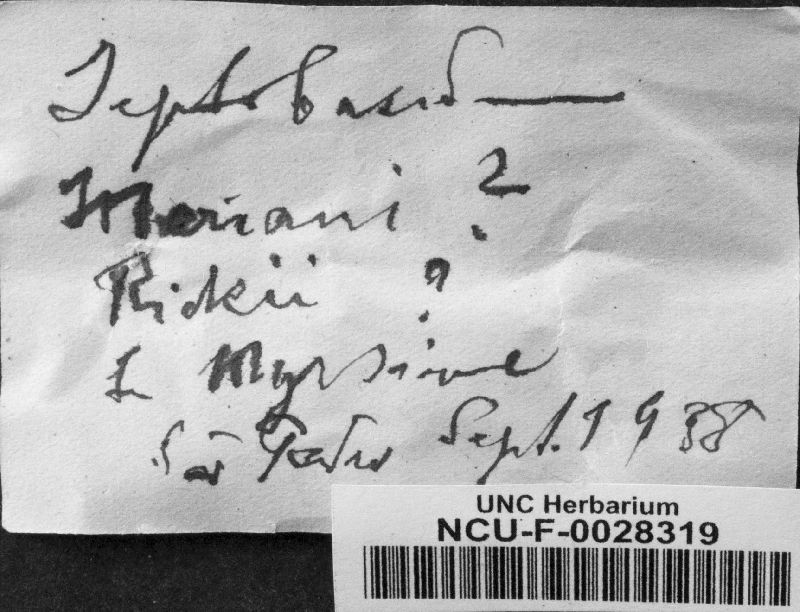 Septobasid
Mariani ?
Rickii ?
L Myrsine
São Pedro Sept. 1938
UNC Herbarium
NCU-F-0028319